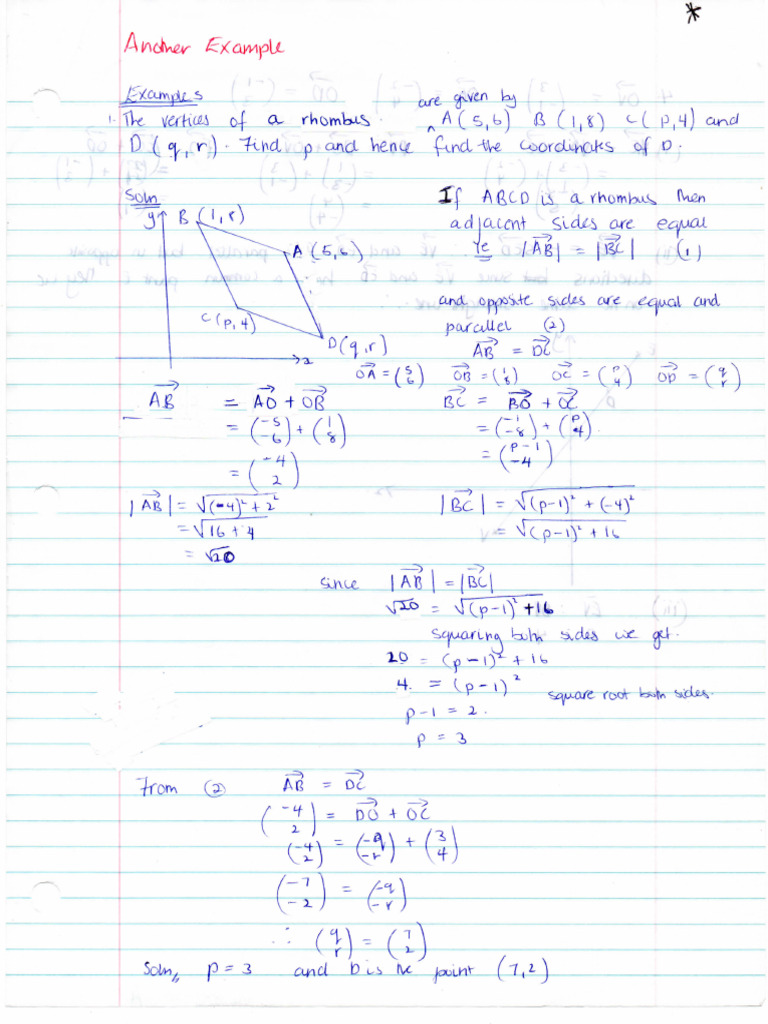 *
Another Example
Examples
are given by
1. The vertices of a rhombus ^ A(5,6) B(1,8) C(p,4) and
D(q,r). Find p and hence find the coordinates of D.
Soln
y B(1,r)
A(5,6)
C(p,4)
D(q,r)
x
If ABCD is a rhombus then
adjacent sides are equal
ie |AB| = |BC| (1)
and opposite sides are equal and
parallel (2)
AB = DC
OA = (5 6) OB = (1 8) OC = (p 4) OD = (q r)
AB = AO + OB
= (-5 -6) + (1 8)
= (-4 2)
BC = BO + OC
= (-1 -8) + (p 4).
= (p-1 -4)
|AB| = √(-4)² + 2²
= √16 + 4
= √20
|BC| = √(p-1)² + (-4)²
= √(p-1)² + 16
since |AB| = |BC|
√20 = √(p-1)² + 16
squaring both sides we get.
20 = (p-1)² + 16
4. = (p-1)² square root both sides.
p-1 = 2.
p = 3
From (2) AB = DC
(-4 2) = DO + OC
(-4 2) = (-q -r) + (3 4)
(-7 -2) = (-q -r)
∴ (q r) = (7 2)
Soln,, p = 3 and D is the point (7,2)